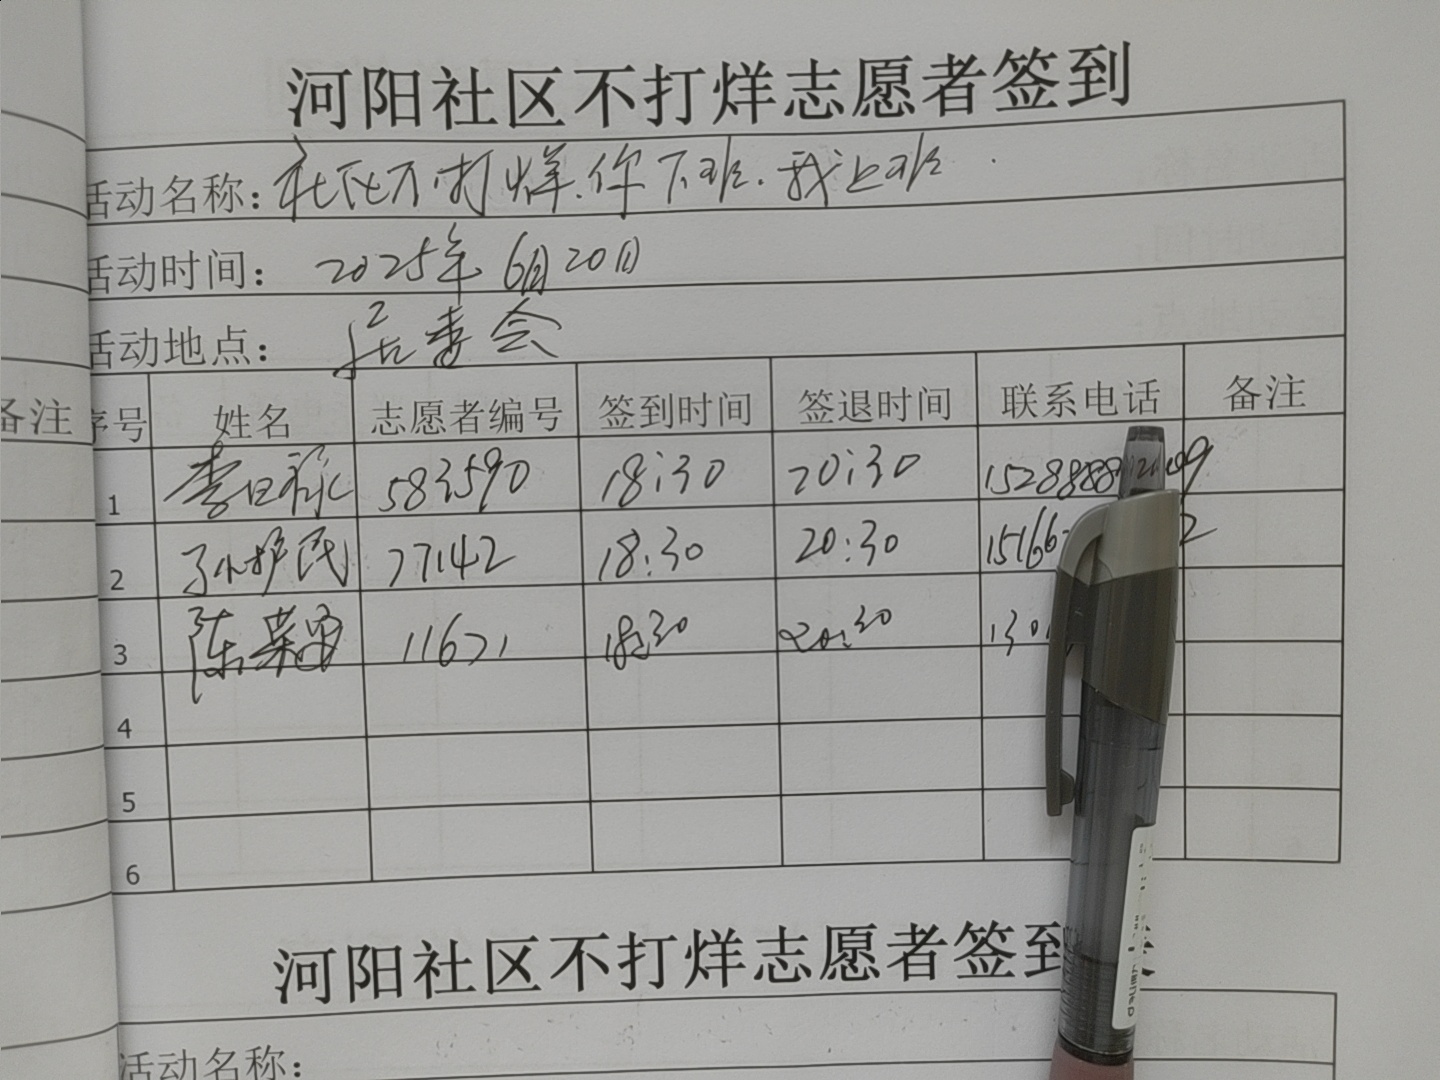 河阳社区不打烊志愿者签到
活动名称：社区不打烊.你下班.我上班.
活动时间： 2025年6月20日
活动地点： 居委会
备注 序号 姓名 志愿者编号 签到时间 签退时间 联系电话 备注
1 李日禄 583590 18:30 20:30
2 孙护民 77142 18:30 20:30
3 陈荣富 11671 18:30 20:30
4
5
6
河阳社区不打烊志愿者签到
活动名称：